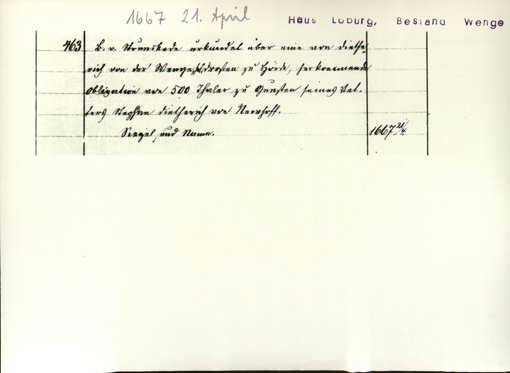 1667 21. April
Haus Loburg, Bestand Wenge
463
B. v. Strünckede urkundet über eine von Diethe-
rich von der Wenge, Drosten zu Hörde, herkommende
Obligation von 500 Thaler zu Gunsten seines Vet-
ters Stephan Dietherich von
Siegel und Name.
1667 21/4